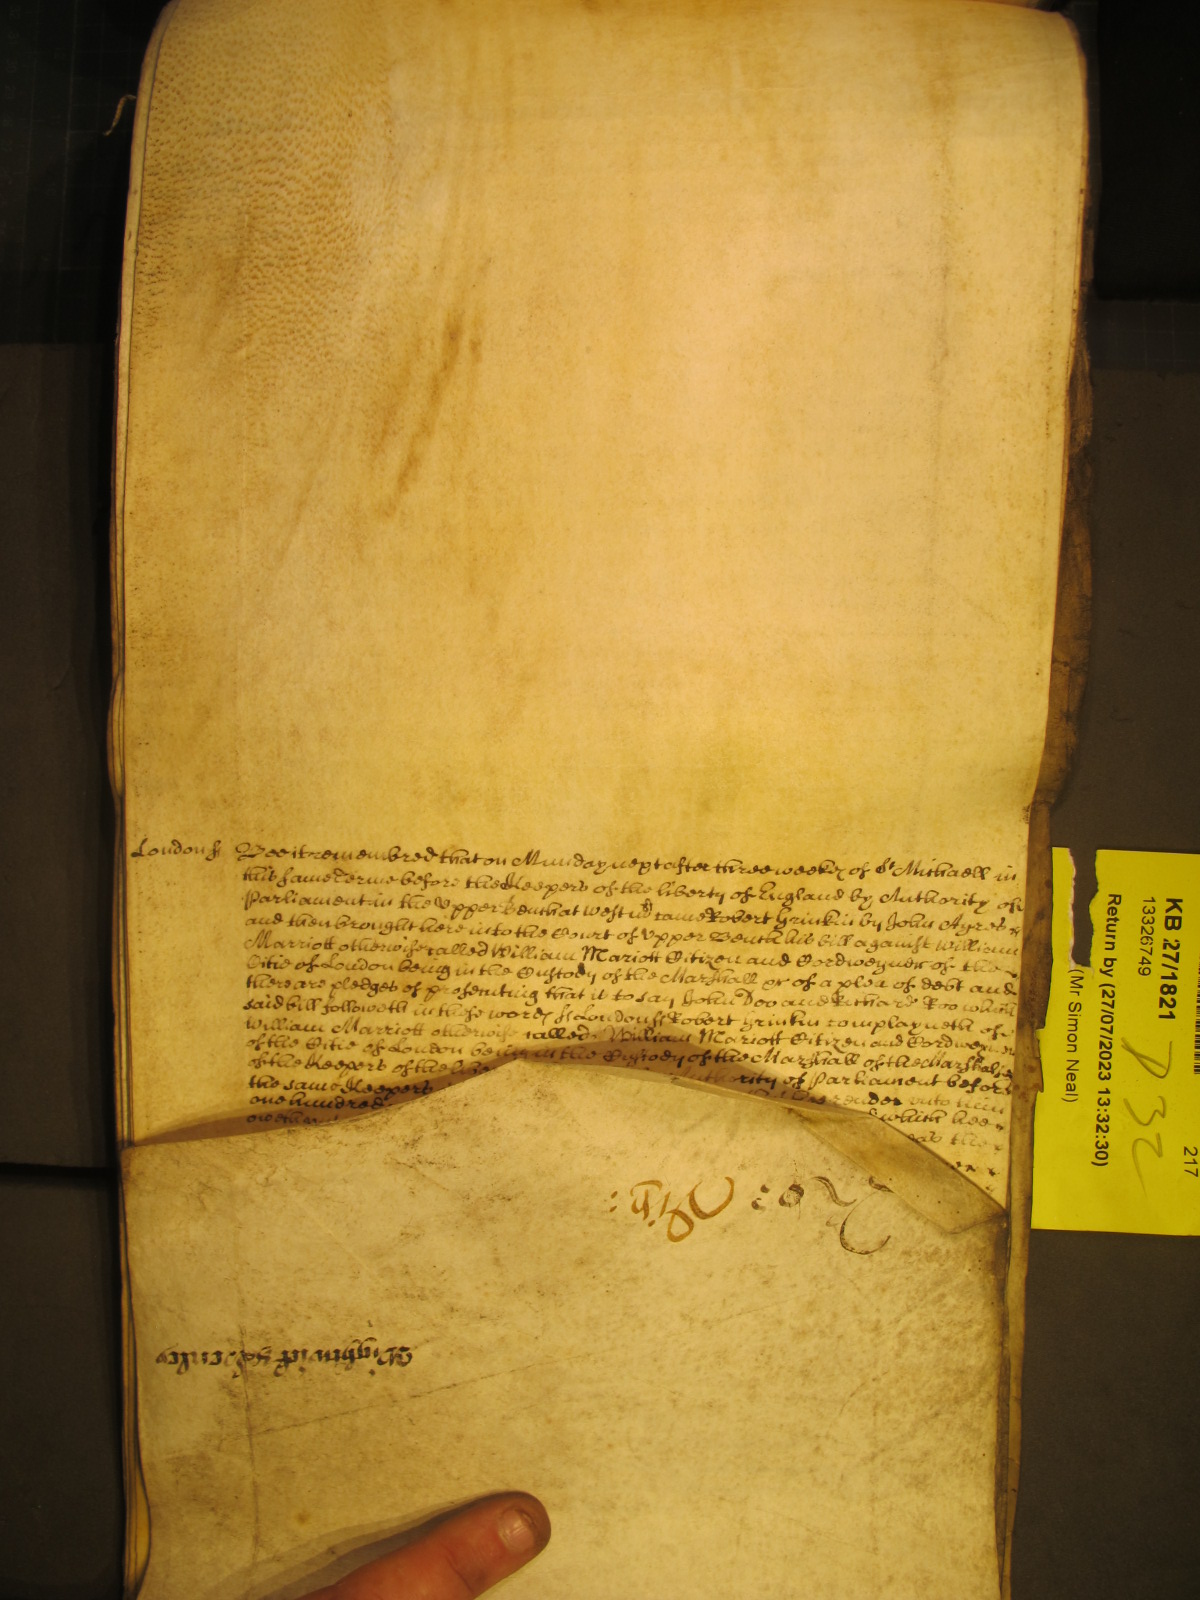 London ss Bee it remembred that on Munday next after three weekes of St Michaell in
this same Terme before the Keepers of the liberty of England by Authority of
Parliament in the Upper Bench at Westmr came Robert Grinkin by John Ayres
and then brought here into the Court of Upper Bench his bill against William
Marriott otherwise called William Mariott Citizen and Cordweyner of the
Citie of London being in the Custody of the Marshall &c of a plea of debt and
there are pledges of prosecuting that is to say John Doo and Richard Roo which
said bill followeth in these words ss London ss Robert Grinkin complayneth of
William Marriott otherwise called William Mariott Citizen and Cordweyner
of the Citie of London being in the Custody of the Marshall of the Marshalsie
of the Keepers of the Authority of Parliament before
the same Keepers render unto him
one hundred which hee
the
Wightwick &
KB 27/1821
13326749
Return by (27/07/2023 13:32:30)
(Mr Simon Neal)
217
P 32